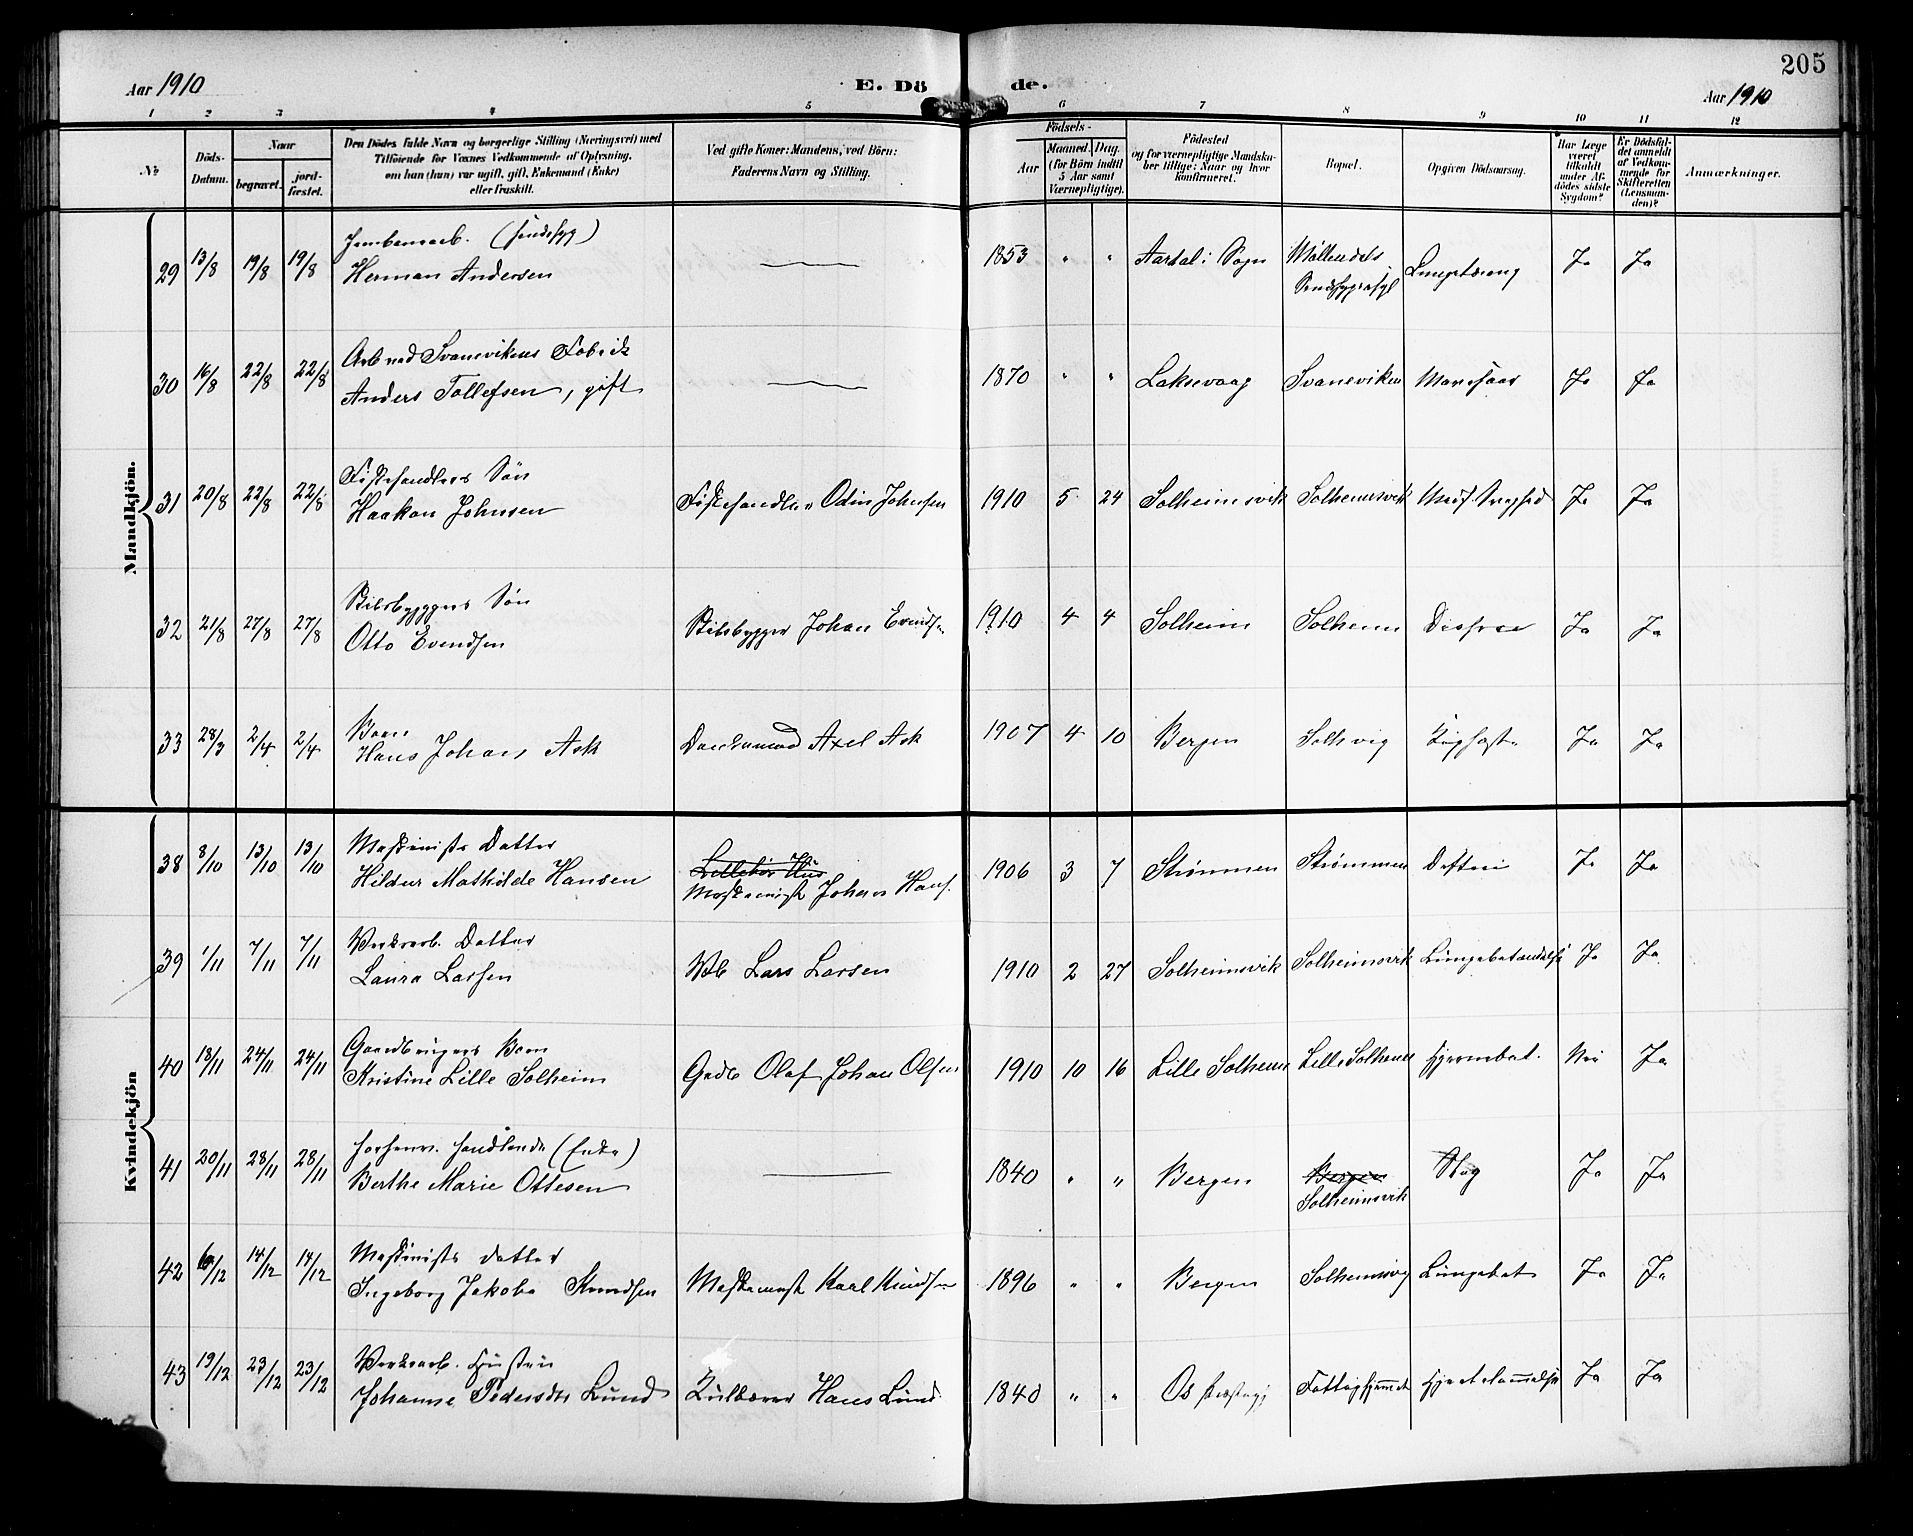 205
Aar 1910
E. Dö de.
Aar 1910
1 2 3 4 5 6 7 8 9 10 11 12
No
Döds-Datum.
Naar
begravet.
jord-fæstet.
Den Dödes fulde Navn og borgerlige Stilling (Næringsvei) med
Tilföiende for Voxnes Vedkommende af Oplysning,
om han (hun) var ugift, gift, Enkemand (Enke)
eller fraskilt.
Ved gifte Koner: Mandens, ved Börn:
Faderens Navn og Stilling.
Födsels-
Aar
Maaned. Dag.
(for Börn indtil
5 Aar samt
Værnepligtige).
Födested
og for værnepligtige Mandska-
ber tillige: Naar og hvor
konfirmeret.
Bopæl.
Opgiven Dödsaarsag.
Har Læge
været
tilkaldt
under Af-
dödes sidste
Sygdom?
Er Dödsfal-
det anmeldt
af Vedkom-
mende for
Skifteretten
(Lensman-
den)?
Anmærkninger.
Mandkjön.
29 13/8 19/8 19/8
Herman Andersen
1853 " " Aardal i Sogn Ja Ja
30 16/8 22/8 22/8 Arb ved Svanevikens Fabrik
Anders Tollefsen, gift
1870 " " Laksevaag Svaneviken Ja Ja
31 20/8 22/8 22/8 Fiskehandlers Sön
Haakon Johnsen Fiskehandler Odin Johnsen 1910 5 24 Solheimsvik Solheimsvik Ja Ja
32 21/8 27/8 27/8 Sön
Otto Evendsen Johan Evendsen 1910 4 4 Solheim Solheim Ja Ja
33 28/3 2/4 2/4 Barn
Hans Johan Ask Axel Ask 1907 4 10 Bergen Solhvig Ja Ja
Kvindekjön
38 8/10 13/10 13/10 Maskinists Datter
Hildur Mathilde Hansen Maskinist Johan Hans. 1906 3 7 Strømmen Strømmen Ja Ja
39 1/11 7/11 7/11 Verksarb. Datter
Laura Larsen Lars Larsen 1910 2 27 Solheimsvik Solheimsvik Lungebetændelse Ja Ja
40 18/11 24/11 24/11 Gaardbrugers Barn
Kristine Lille Solheim Grdb Olaf Johan Olsen 1910 10 16 Lille Solheim Lille Solheim Hjernebet. Nei Ja
41 20/11 28/11 28/11 handlende (Enke)
Berthe Marie Ottesen
1840 " " Bergen Bergen
Solheimsvik Slag Ja Ja
42 6/12 14/12 14/12 Maskinists datter
Ingeborg Jakobe Knudsen Maskinist Karl Knudsen 1896 " " Bergen Solheimsvig Lungebet Ja Ja
43 19/12 23/12 23/12 Verksarb. Hustru
Johanne Pedersdtr Lund Hans Lund 1840 " " Os Fattighjemmet Ja Ja